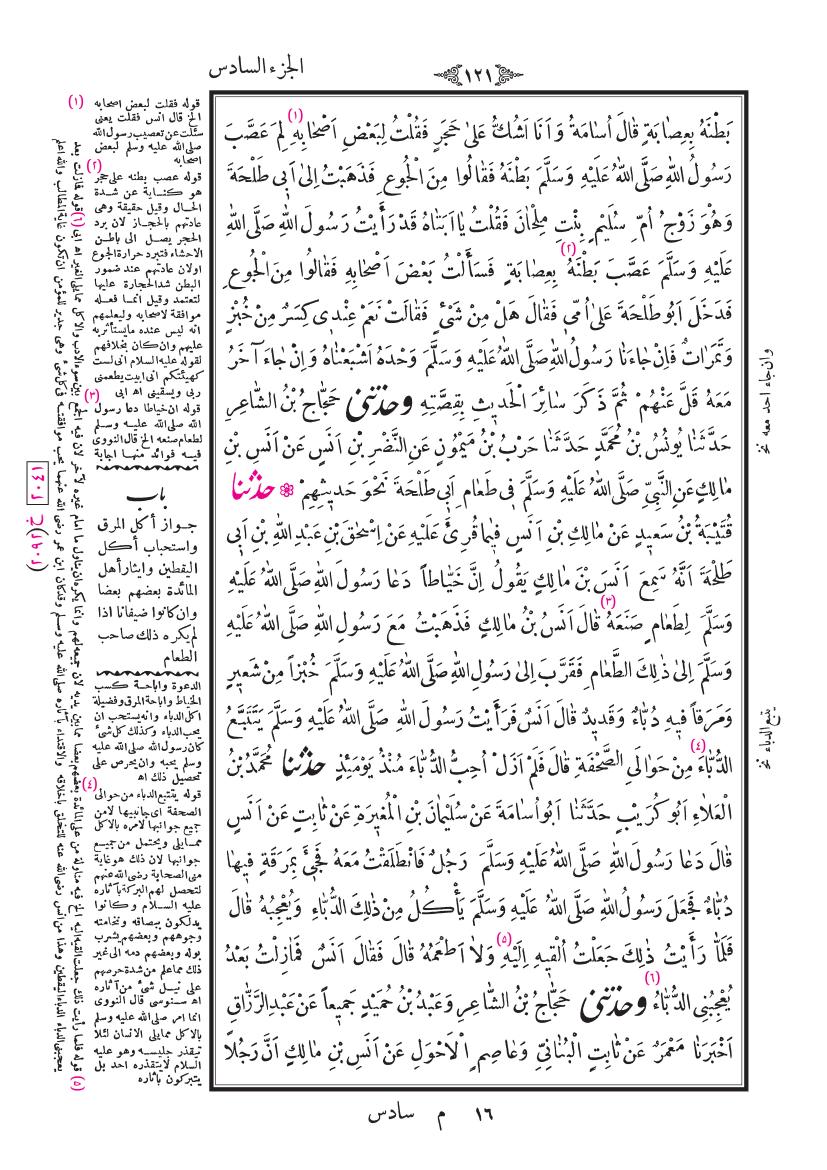 الجزء السادس
١٢١
بَطْنَهُ بِعِصَابَةٍ قَالَ اُسَامَةُ وَاَنَا اَشُكُّ عَلىٰ حَجَرٍ فَقُلْتُ لِبَعْضِ اَصْحَابِهِ (١) لِمَ عَصَّبَ
رَسُولُ اللهِ صَلَّى اللهُ عَلَيْهِ وَسَلَّمَ بَطْنَهُ فَقَالُوا مِنَ الْجُوعِ فَذَهَبْتُ اِلىٰ اَبِي طَلْحَةَ
وَهُوَ زَوْجُ اُمِّ سُلَيْمٍ بِنْتِ مِلْحَانَ فَقُلْتُ يَا اَبَتَاهُ قَدْ رَأَيْتُ رَسُولَ اللهِ صَلَّى اللهُ
عَلَيْهِ وَسَلَّمَ عَصَّبَ بَطْنَهُ (٢) بِعِصَابَةٍ فَسَأَلْتُ بَعْضَ اَصْحَابِهِ فَقَالُوا مِنَ الْجُوعِ
فَدَخَلَ اَبُو طَلْحَةَ عَلىٰ اُمِّي فَقَالَ هَلْ مِنْ شَىْءٍ فَقَالَتْ نَعَمْ عِنْدِي كِسَرٌ مِنْ خُبْزٍ
وَتَمَرَاتٌ فَاِنْ جَاءَنَا رَسُولُ اللهِ صَلَّى اللهُ عَلَيْهِ وَسَلَّمَ وَحْدَهُ اَشْبَعْنَاهُ وَاِنْ جَاءَ آخَرُ
مَعَهُ قَلَّ عَنْهُمْ ثُمَّ ذَكَرَ سَائِرَ الْحَدِيثِ بِقِصَّتِهِ وحدثنى حَجَّاجُ بْنُ الشَّاعِرِ
حَدَّثَنَا يُونُسُ بْنُ مُحَمَّدٍ حَدَّثَنَا حَرْبُ بْنُ مَيْمُونٍ عَنِ النَّضْرِ بْنِ اَنَسٍ عَنْ اَنَسِ بْنِ
مَالِكٍ عَنِ النَّبِيِّ صَلَّى اللهُ عَلَيْهِ وَسَلَّمَ فِي طَعَامِ اَبِي طَلْحَةَ نَحْوَ حَدِيثِهِمْ حدثنا
قُتَيْبَةُ بْنُ سَعِيدٍ عَنْ مَالِكِ بْنِ اَنَسٍ فِيمَا قُرِئَ عَلَيْهِ عَنْ اِسْحٰقَ بْنِ عَبْدِ اللهِ بْنِ اَبِي
طَلْحَةَ اَنَّهُ سَمِعَ اَنَسَ بْنَ مَالِكٍ يَقُولُ اِنَّ خَيَّاطاً دَعَا رَسُولَ اللهِ صَلَّى اللهُ عَلَيْهِ
وَسَلَّمَ لِطَعَامٍ صَنَعَهُ (٣) قَالَ اَنَسُ بْنُ مَالِكٍ فَذَهَبْتُ مَعَ رَسُولِ اللهِ صَلَّى اللهُ عَلَيْهِ
وَسَلَّمَ اِلىٰ ذٰلِكَ الطَّعَامِ فَقَرَّبَ اِلىٰ رَسُولِ اللهِ صَلَّى اللهُ عَلَيْهِ وَسَلَّمَ خُبْزاً مِنْ شَعِيرٍ
وَمَرَقاً فِيهِ دُبَّاءٌ وَقَدِيدٌ قَالَ اَنَسٌ فَرَأَيْتُ رَسُولَ اللهِ صَلَّى اللهُ عَلَيْهِ وَسَلَّمَ يَتَتَبَّعُ
الدُّبَّاءَ مِنْ حَوَالَىِ (٤) الصَّحْفَةِ قَالَ فَلَمْ اَزَلْ اُحِبُّ الدُّبَّاءَ مُنْذُ يَوْمَئِذٍ حدثنا مُحَمَّدُ بْنُ
الْعَلَاءِ اَبُو كُرَيْبٍ حَدَّثَنَا اَبُو اُسَامَةَ عَنْ سُلَيْمَانَ بْنِ الْمُغِيرَةِ عَنْ ثَابِتٍ عَنْ اَنَسٍ
قَالَ دَعَا رَسُولَ اللهِ صَلَّى اللهُ عَلَيْهِ وَسَلَّمَ رَجُلٌ فَانْطَلَقْتُ مَعَهُ فَجِيءَ بِمَرَقَةٍ فِيهَا
دُبَّاءٌ فَجَعَلَ رَسُولُ اللهِ صَلَّى اللهُ عَلَيْهِ وَسَلَّمَ يَأْكُلُ مِنْ ذٰلِكَ الدُّبَّاءِ وَيُعْجِبُهُ قَالَ
فَلَمَّا رَأَيْتُ ذٰلِكَ جَعَلْتُ اُلْقِيهِ اِلَيْهِ (٥) وَلَا اَطْعَمُهُ قَالَ فَقَالَ اَنَسٌ فَمَازِلْتُ بَعْدُ
يُعْجِبُنِي الدُّبَّاءُ (٦) وحدثنى حَجَّاجُ بْنُ الشَّاعِرِ وَعَبْدُ بْنُ حُمَيْدٍ جَمِيعاً عَنْ عَبْدِ الرَّزَّاقِ
اَخْبَرَنَا مَعْمَرٌ عَنْ ثَابِتٍ الْبُنَانِيِّ وَعَاصِمٍ الْاَحْوَلِ عَنْ اَنَسِ بْنِ مَالِكٍ اَنَّ رَجُلاً
وان جاء احد معه نخ
يتبع الدباء نخ
(١) قوله فقلت لبعض اصحابه
الخ قال انس فقلت يعنى
سئلت عن تعصيب رسول الله
صلى الله عليه وسلم لبعض
اصحابه
(٢) قوله عصب بطنه على حجر
هو كناية عن شدة
الحال وقيل حقيقة وهى
عادتهم بالحجاز لان برد
الحجر يصل الى باطن
الاحشاء فتبرد حرارة الجوع
اولان عادتهم عند ضمور
البطن شد الحجارة عليها
لتعتمد وقيل انما فعله
موافقة لاصحابه وليعلمهم
انه ليس عنده مايستأثر به
عليهم وان كان بخلافهم
لقوله عليه السلام انى لست
كهيئتكم انى ابيت يطعمنى
ربى ويسقينى اه ابى
(٣) قوله ان خياطا دعا رسول
الله صلى الله عليه وسلم
لطعام صنعه الخ قال النووى
فيه فوائد منها اجابة
باب
جواز أكل المرق
واستحباب أكل
اليقطين وايثار أهل
المائدة بعضهم بعضا
وان كانوا ضيفانا اذا
لم يكره ذلك صاحب
الطعام
الدعوة واباحة كسب
الخياط واباحة المرق وفضيلة
اكل الدباء وانه يستحب ان
يحب الدباء وكذلك كل شئ
كان رسول الله صلى الله عليه
وسلم يحبه وان يحرص على
تحصيل ذلك اه
(٤) قوله يتتبع الدباء من حوالى
الصحفة اى جانبها لا من
جميع جوانبها لامره بالاكل
ممايلى ويحتمل من جميع
جوانبها لان ذلك هو غاية
منى الصحابة رضى الله عنهم
لتحصل لهم البركة بآثاره
عليه السلام وكانوا
يدلكون ببصاقه ونخامته
وجوههم وبعضهم يشرب
بوله وبعضهم دمه الى غير
ذلك مما علم من شدة حرصهم
على نيل شىء من آثاره
اه سنوسى قال النووى
انما امر صلى الله عليه وسلم
بالاكل ممايلى الانسان لئلا
تيقذر جليسه وهو عليه
السلام لا يتقذره احد بل
يتبركون بآثاره
١٦ م سادس